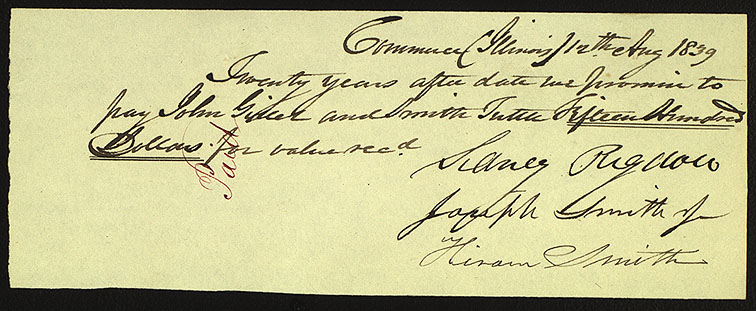 Commerce (Illinois) 12th Aug 1839
Twenty years after date we promise to
pay John Gillet and Smith Tuttle Fifteen Hundred
Dollars. for value recd.
Paid
Sidney Rigdon
Joseph Smith Jr
Hiram Smith